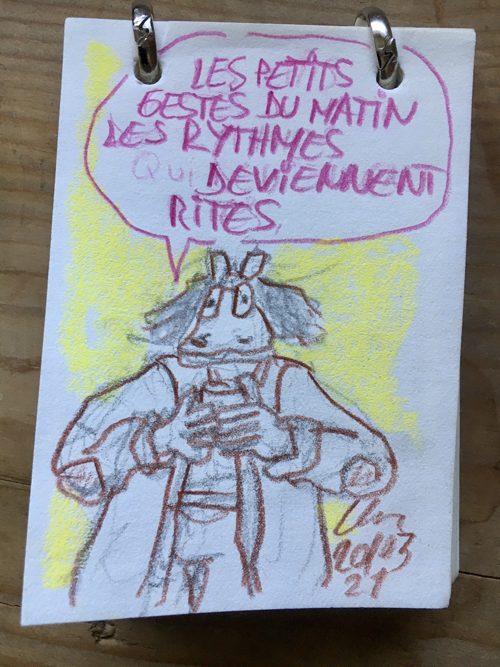 LES PETITS
GESTES DU MATIN
DES RYTHMES
QUi DEVIENNENT
RITES
20/03
21